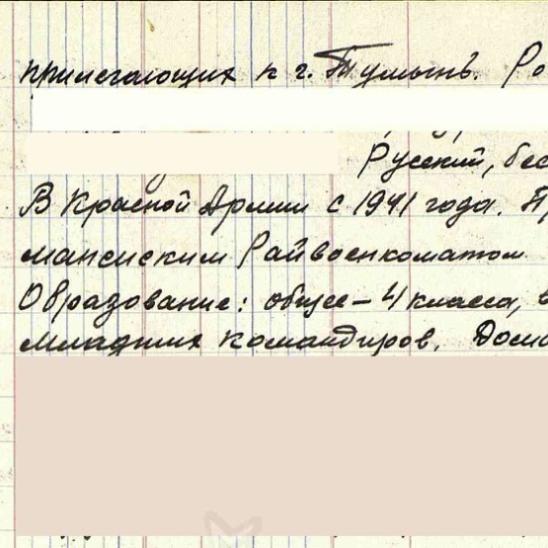 прилегающих к г. Тулынь. Ро
Русский, бес
В Красной Армии с 1941 года. Пр
мансийским Райвоенкоматом
Образование: общее – 4 класса, в
младших командиров. Дома